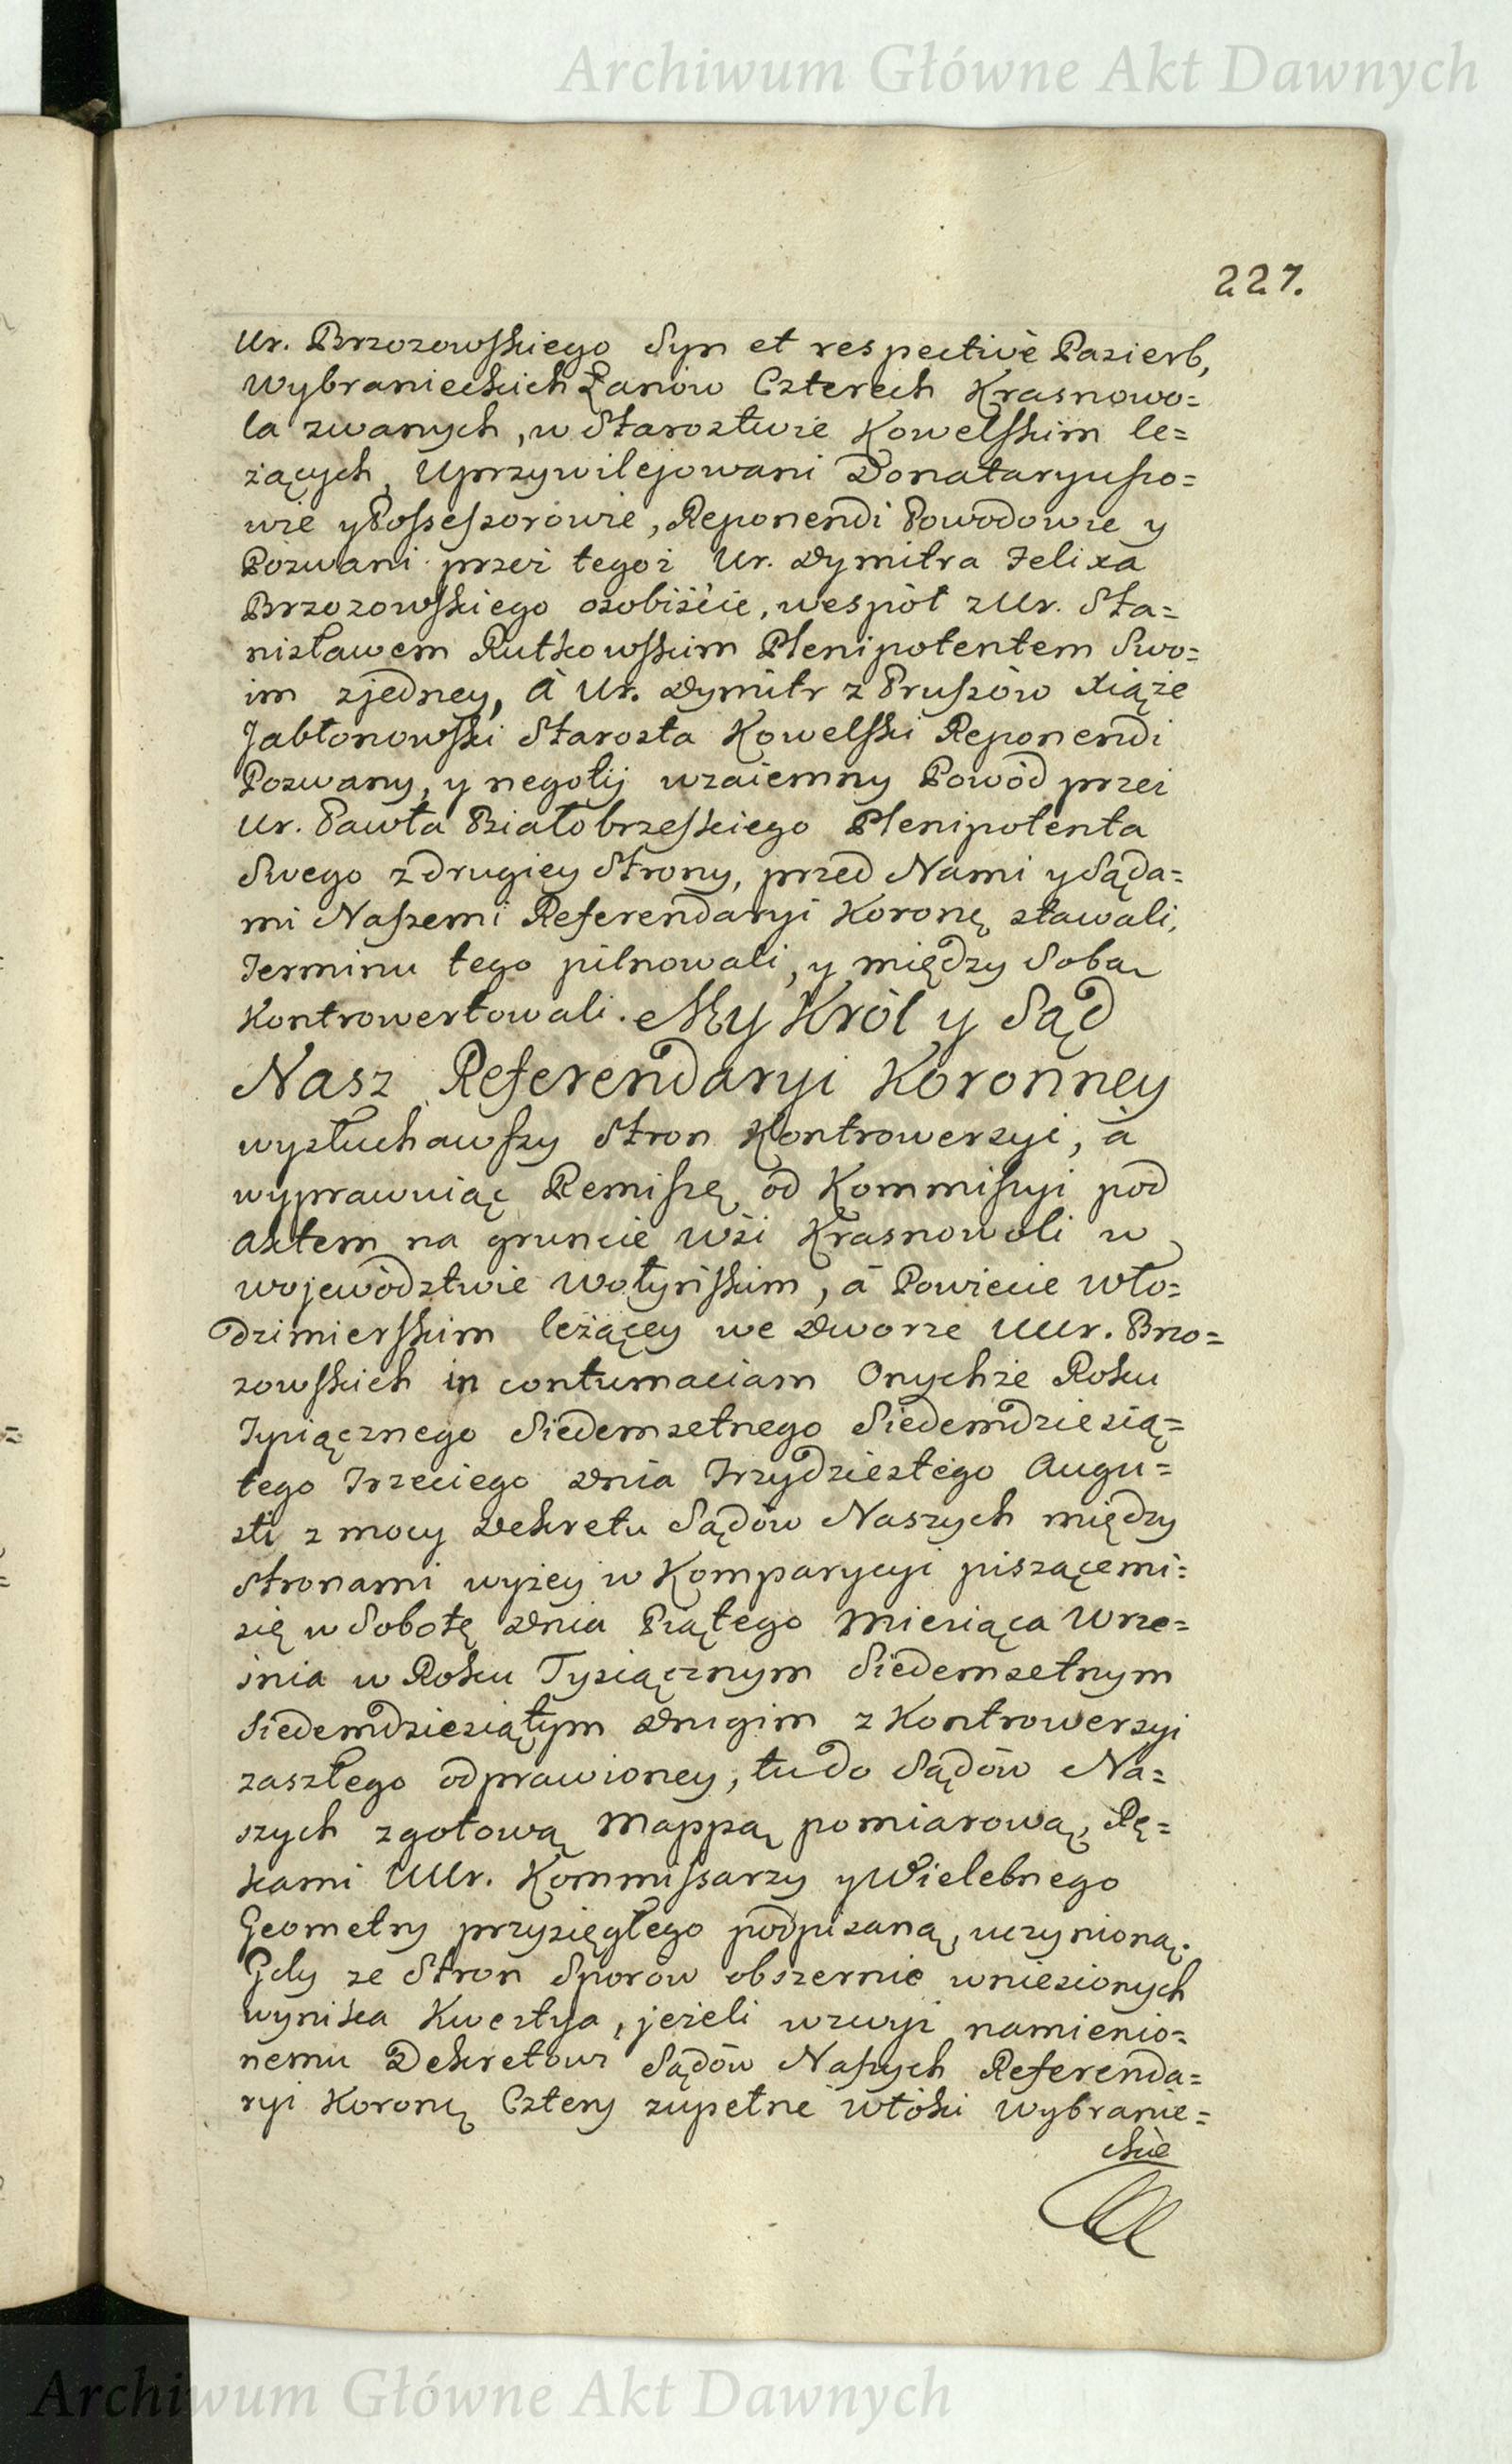 Archiwum Główne Akt Dawnych
227.
Ur. Brzozowskiego Syn et respectivè Pasierb,
Wybranieckich Łanów Czterech Krasnowo=
la zwanych, w Starostwie Kowelskim le=
żących, Uprzywilejowani Donataryuszo=
wie y Possessorowie, Reponendi Powodowie y
Pozwani przez tegoż Ur. Dymitra Felixa
Brzozowskiego osobiście, wespół z Ur. Sta=
nisławem Rutkowskim Plenipotentem Swo=
im zjedney, à Ur. Dymitr z Pruszów Xiąże
Jabłonowski Starosta Kowelski Reponendi
Pozwany, y negotij wzaiemny Powód przez
Ur. Pawła Białobrzeskiego Plenipotenta
Swego z drugiey Strony, przed Nami y Sąda=
mi Naszemi Referendaryi Koronę stawali,
Terminu tego pilnowali, y między Sobą
Kontrowertowali. My Król y Sąd
Nasz Referendaryi Koronney
wysłuchawszy Stron Kontrowersyi, à
wyprawuiąc Remissę od Kommissyi pod
aktem na gruncie Wsi Krasnowoli w
wojewodztwie Wołyńskim, à Powiecie Wło=
dzimierskim leżącey we Dworze UUr. Brzo=
zowskich in contumaciam Onychże Roku
Tysiącznego Siedemsetnego Siedemdziesią=
tego Trzeciego Dnia Trzydziestego Augu=
sti z mocy Dekretu Sądów Naszych między
Stronami wyżey w Komparycyi piszącemi=
się w Sobotę Dnia Piątego Miesiąca Wrze=
śnia w Roku Tysiącznym Siedemsetnym
Siedemdziesiątym Drugim z Kontrowersyi
zaszłego odprawioney, tu do Sądów Na=
szych z gotową Mappą pomiarową, Rę=
kami UUr. Kommissarzy y Wielebnego
Geometry przysięgłego podpisaną, uczynioną.
Gdy ze Stron Sporów obszernie wniesionych
wynika Kwestya, jeżeli wzwyż namienio=
nemu Dekretowi Sądów Naszych Referenda=
ryi Koronę Cztery zupełne włóki Wybranie=
ckie
Archiwum Główne Akt Dawnych